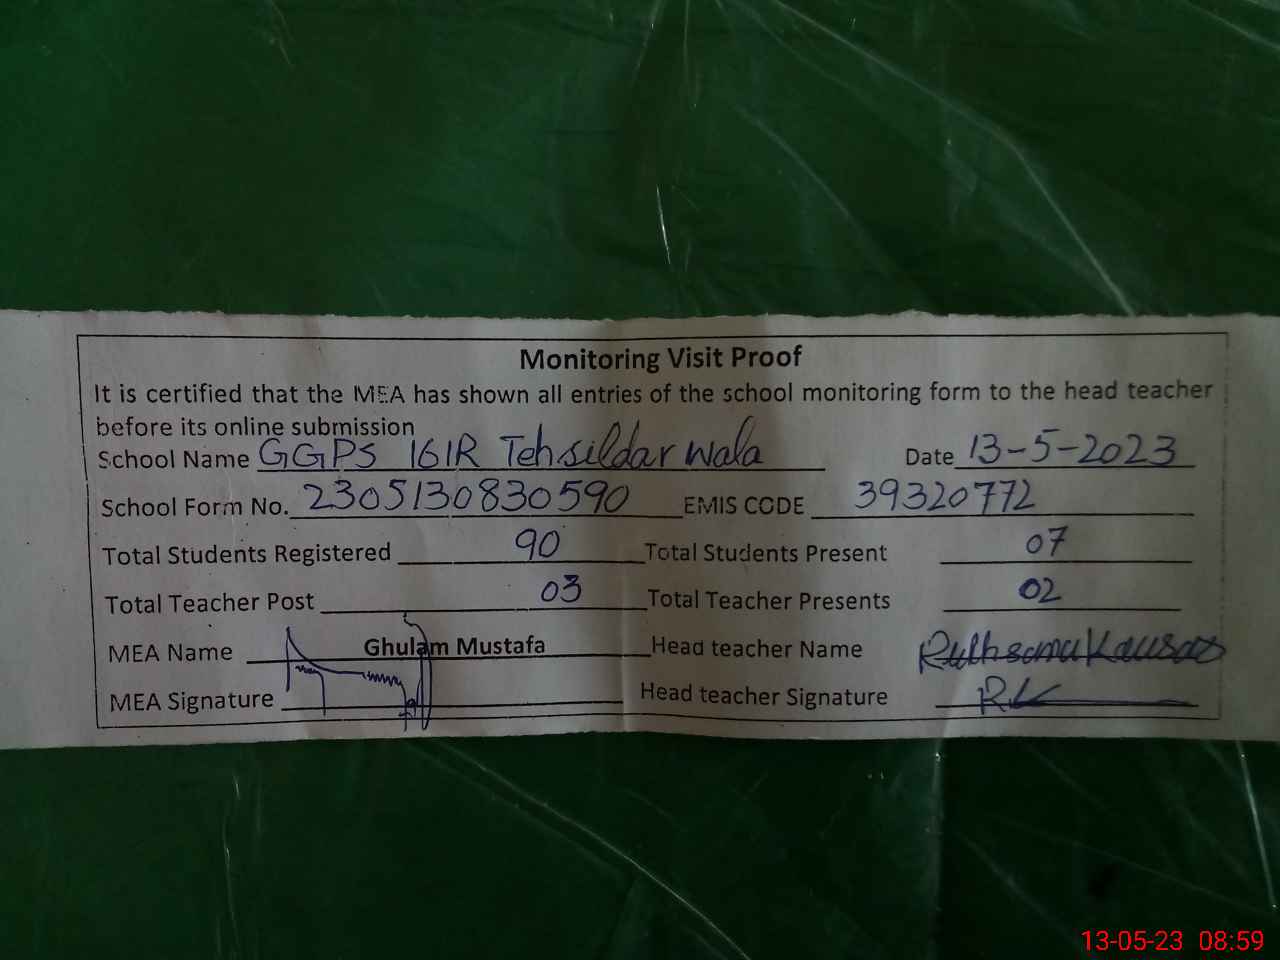 Monitoring Visit Proof
It is certified that the MEA has shown all entries of the school monitoring form to the head teacher
before its online submission
School Name GGPS 161R Tehsildar wala Date 13-5-2023
School Form No. 2305130830590 EMIS CODE 39320772
Total Students Registered 90 Total Students Present 07
Total Teacher Post 03 Total Teacher Presents 02
MEA Name Ghulam Mustafa Head teacher Name
MEA Signature Head teacher Signature RK
13-05-23 08:59